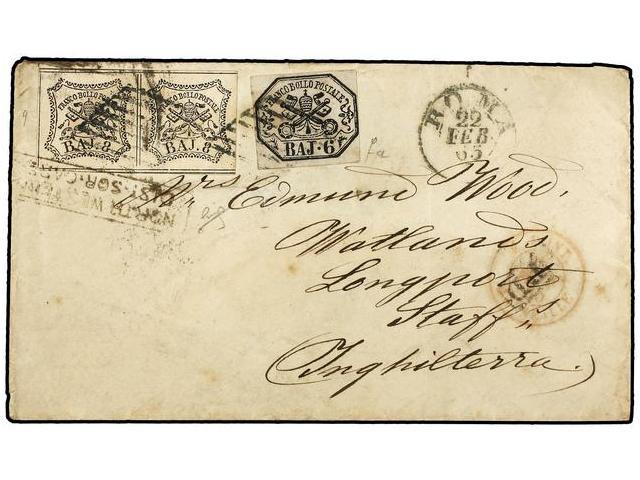 FRANCO BOLLO POSTALE FRANCO BOLLO POSTALE FRANCO BOLLO POSTALE
BAJ. 8 BAJ. 8 BAJ. 6
ROMA
22
FEB
63
Mrs Edmund Wood,
Watlands
Longport
Staff"s
(Inghilterra.)